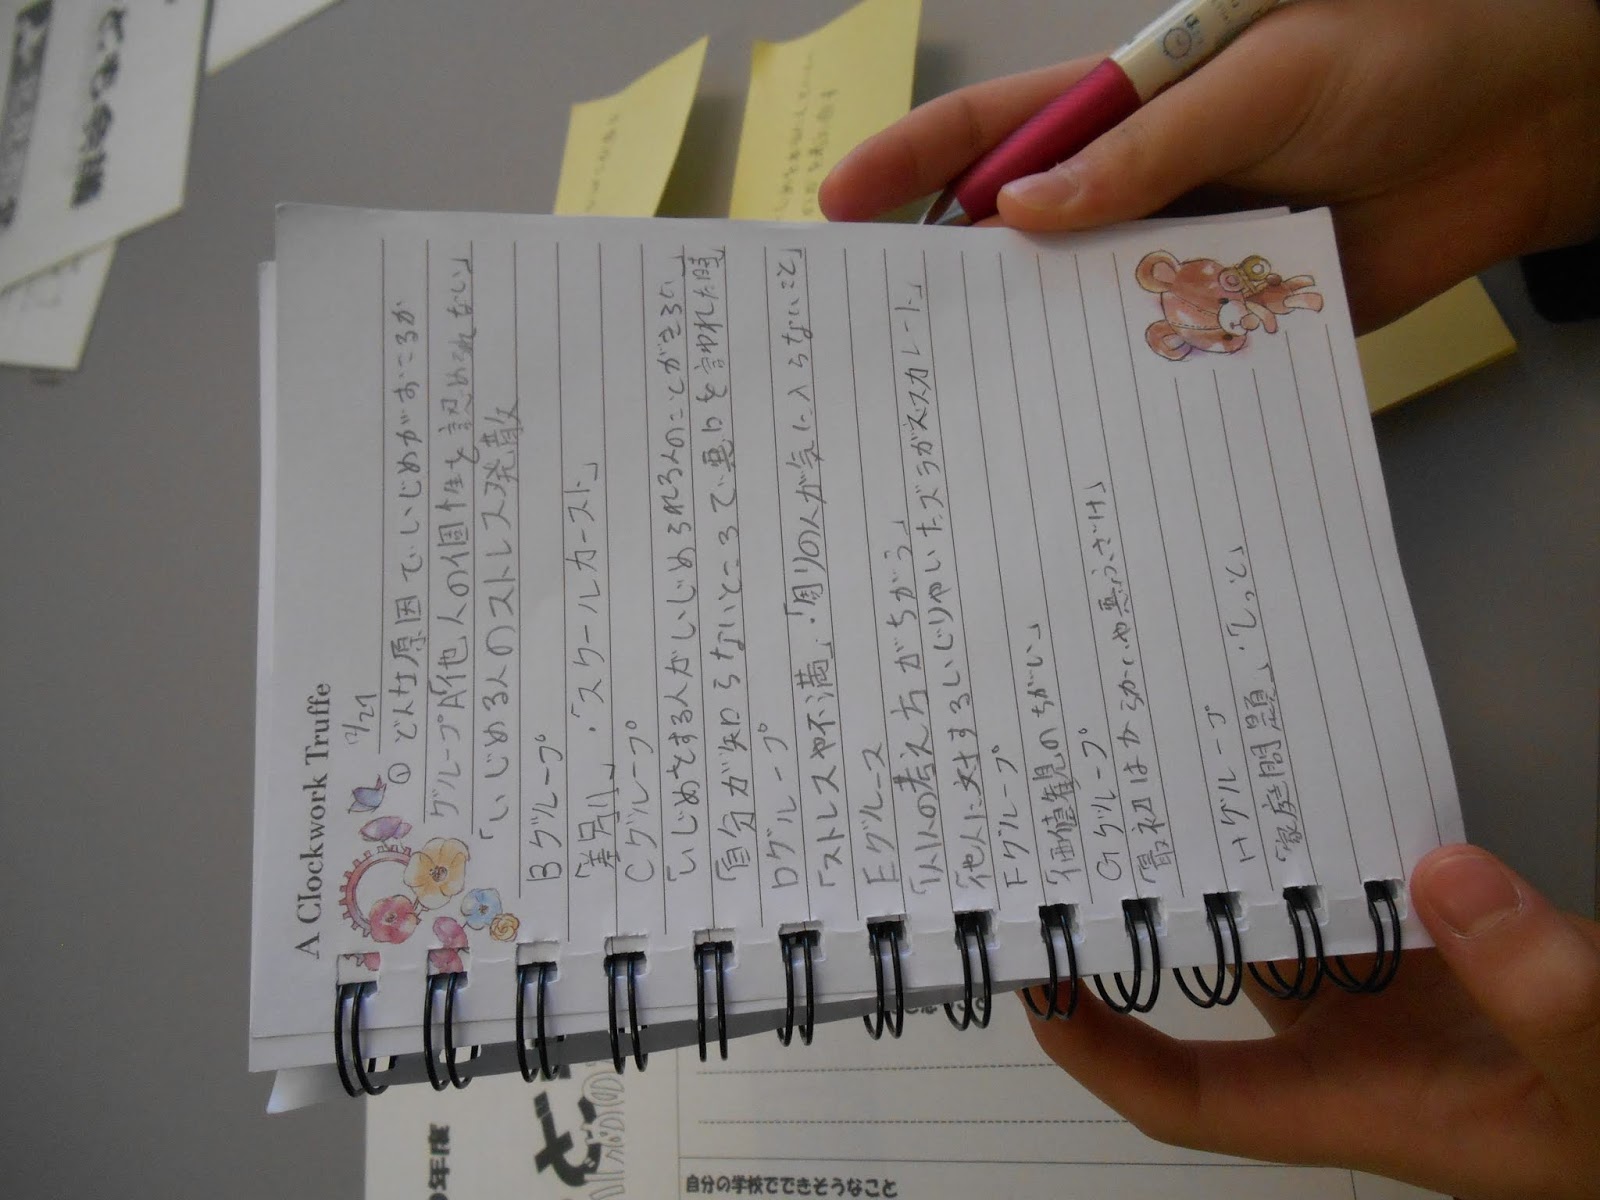 A Clockwork Truffe
12/21
① どんな原因でいじめがおこるか
グループA「他人の個性を認められない」
「いじめる人のストレス発散
Bグループ
「差別」・「スクールカースト」
Cグループ
「いじめをする人がいじめられる人のことがきらい」
「自分が知らないところで悪口を言われた時
Dグループ
「ストレスや不満」・「周りの人が気に入らないこと」
Eグルース
「1人1人の考え方がちがう」
「他人に対するいじりやいたズラがエスカレート」
Fグループ
「価値観のちがい」
Gグループ
「最初はからかいや悪ふざけ」
Hグループ
「家庭問題」・「しっと」
ども会議
年度
自分の学校でできそうなこと